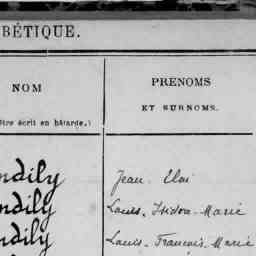 BÉTIQUE.
NOM
PRENOMS
ET SURNOMS.
être écrit en bâtarde.)
ndily
Jean Eloi
ndily
Louis-Isidore-Marie
ndily
Louis-François-Marie